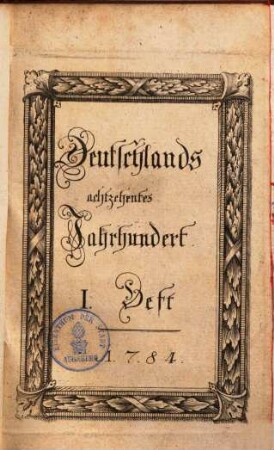 Deutschlands
achtzehentes
Jahrhundert
I. Heft
1.7.8.4.